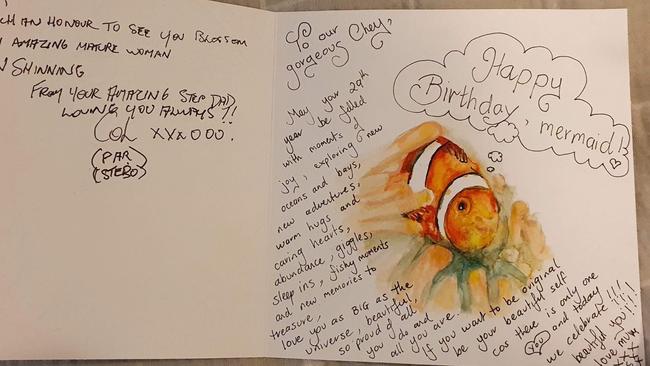 CH AN HONOUR TO SEE YOU BLOSSOM
AMAZING MATURE WOMAN
N SHINNING
FROM YOUR AMAZING STEP DAD
LOVING YOU ALWAYS !!
COL XXXOOO!
(PAR)
(STEBO)
To our
gorgeous Chey,
Happy
Birthday, mermaid!
May your 29th
year be filled
with moments of
joy, exploring new
oceans and bays,
new adventures,
warm hugs and
caring hearts,
abundance, giggles,
sleep ins, fishy moments
and new memories to
treasure,
love you as BIG as the
universe, beautiful,
so proud of all
you do and
all you are.
If you want to be original
be your beautiful self
cos there is only one
You and today
we celebrate!!!
beautiful you!!!
love mum
xxx